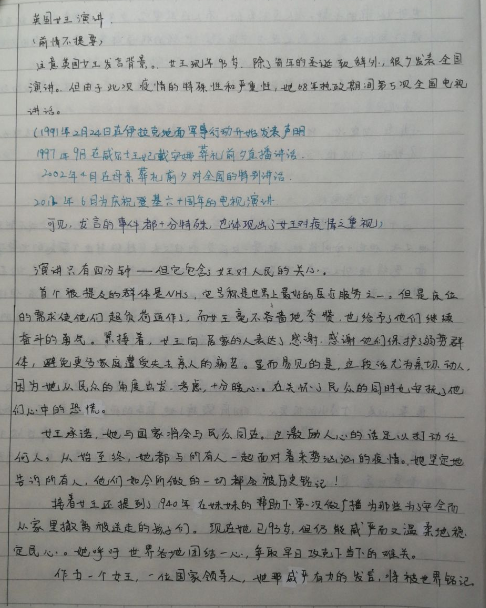 英国女王演讲
(前情不提要)
注意英国女王发言背景。女王现年93岁,除了每年的圣诞祝辞外,很少发表全国
演讲。但由于此次疫情的特殊性和严重性,她68年执政期间第5次全国电视
讲话。
(1991年2月24日在伊拉克地面军事行动开始发表声明
1997年9月在威尔士王妃戴安娜葬礼前夕直播讲话
2002年4月在母亲葬礼前夕对全国的特别讲话
2012年6月为庆祝登基六十周年的电视演讲
可见,发言的事件都十分特殊,也体现出了女王对疫情之重视)
演讲只有四分钟——但它包含了女王对人民的关心。
首个被提及的群体是NHS,它号称是世界上最好的医疗服务之一。但是庞大
的需求使他们超负荷运作,而女王毫不吝啬地夸赞,也给予了他们继续
奋斗的勇气。紧接着,女王向居家的人表达了感谢,感谢他们保护了弱势群
体,避免更多家庭遭受失去亲人的痛苦。显而易见的是,这段话尤为亲切、动人,
因为她从民众的角度出发、考虑,十分暖心。在关怀了民众的同时也安抚了他
们心中的恐慌。
女王承诺,她与国家将会与民众同在。这激励人心的话足以打动任
何人。从始至终,她都与所有人一起面对着来势汹汹的疫情。她坚定地
告诉所有人,他们如今所做的一切都会被历史铭记!
接着女王还提到了1940年在妹妹的帮助下第一次做广播为那些为了安全而
从家里撤离被送走的孩子们。现在她已93岁,但仍能威严而又温柔地稳
定民心。她呼吁世界各地团结一心,争取早日攻克下当下的难关。
作为一个女王,一位国家领导人,她那威严有力的发言,将被世界铭记。